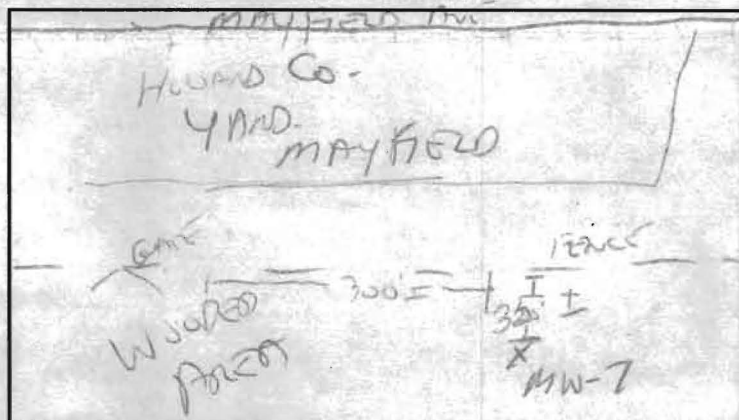 MAYFIELD AVE
HOWARD Co.
YARD.
MAYFIELD
GATE
FENCE
300'±
±
WOODED
AREA
MW-7